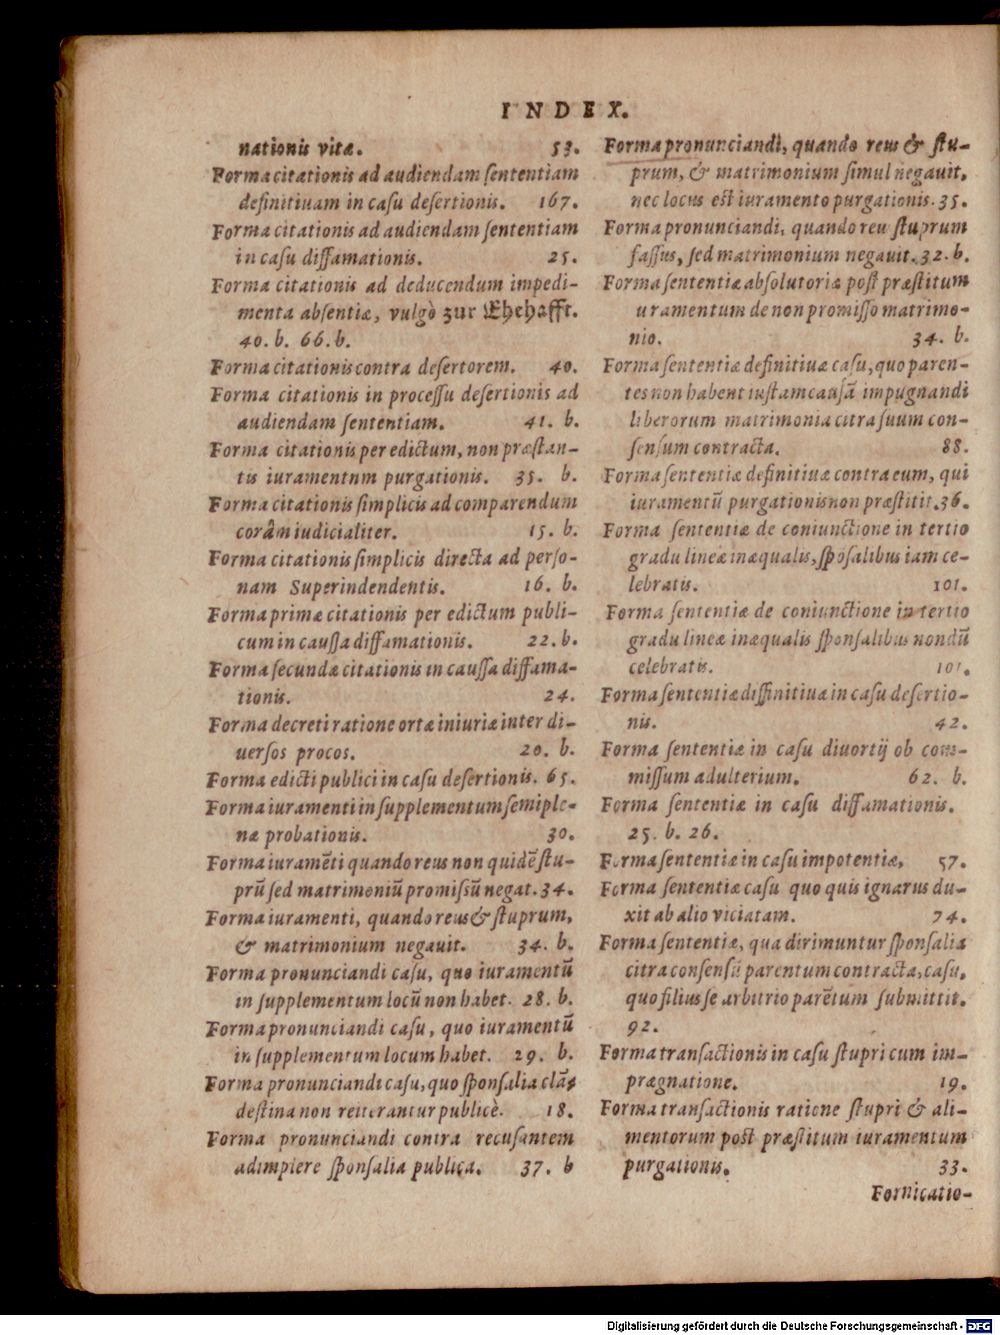 INDEX.
nationis vitæ. 53.
Forma citationis ad audiendam sententiam
definitiuam in casu desertionis. 167.
Forma citationis ad audiendam sententiam
in casu diffamationis. 25.
Forma citationis ad deducendum impedi-
menta absentiæ, vulgò zur Ehehafft.
40. b. 66. b.
Forma citationis contra desertorem. 40.
Forma citationis in processu desertionis ad
audiendam sententiam. 41. b.
Forma citationis per edictum, non præstan-
tis iuramentnm purgationis. 35. b.
Forma citationis simplicis ad comparendum
corâm iudicialiter. 15. b.
Forma citationis simplicis directa ad perso-
nam Superindendentis. 16. b.
Forma primæ citationis per edictum publi-
cum in caussa diffamationis. 22. b.
Forma secundæ citationis in caussa diffama-
tionis. 24.
Forma decreti ratione ortæ iniuriæ inter di-
uersos procos. 20. b.
Forma edicti publici in casu desertionis. 65.
Forma iuramenti in supplementum semiple-
næ probationis. 30.
Forma iuramẽti quando reus non quidẽ stu-
prũ sed matrimoniũ promissũ negat. 34.
Forma iuramenti, quando reus & stuprum,
& matrimonium negauit. 34. b.
Forma pronunciandi casu, quo iuramentũ
in supplementum locũ non habet. 28. b.
Forma pronunciandi casu, quo iuramentũ
in supplementum locum habet. 29. b.
Forma pronunciandi casu, quo sponsalia clã-
destina non reiterantur publicè. 18.
Forma pronunciandi contra recusantem
adimplere sponsalia publica. 37. b
Forma pronunciandi, quando reus & stu-
prum, & matrimonium simul negauit,
nec locus est iuramento purgationis. 35.
Forma pronunciandi, quando reu stuprum
fassus, sed matrimonium negauit. 32. b.
Forma sententiæ absolutoriæ post præstitum
uramentum de non promisso matrimo-
nio. 34. b.
Forma sententiæ definitiuæ casu, quo paren-
tes non habent iustam causã impugnandi
liberorum matrimonia citra suum con-
sensum contracta. 88.
Forma sententiæ definitiuæ contra eum, qui
iuramentũ purgationis non præstitit. 36.
Forma sententiæ de coniunctione in tertio
gradu lineæ inæqualis, spõsalibus iam ce-
lebratis. 101.
Forma sententiæ de coniunctione in tertio
gradu lineæ inæqualis sponsalibus nondũ
celebratis. 101.
Forma sententiæ diffinitiuæ in casu desertio-
nis. 42.
Forma sententiæ in casu diuortij ob com-
missum adulterium. 62. b.
Forma sententiæ in casu diffamationis.
25. b. 26.
Forma sententiæ in casu impotentiæ, 57.
Forma sententiæ casu quo quis ignarus du-
xit ab alio viciatam. 74.
Forma sententiæ, qua dirimuntur sponsalia
citra consensũ parentum contracta, casu,
quo filius se arbitrio parẽtum submittit.
92.
Forma transactionis in casu stupri cum im-
prægnatione. 19.
Forma transactionis ratione stupri & ali-
mentorum post præstitum iuramentum
purgationis. 33.
Fornicatio-
Digitalisierung gefördert durch die Deutsche Forschungsgemeinschaft - DFG